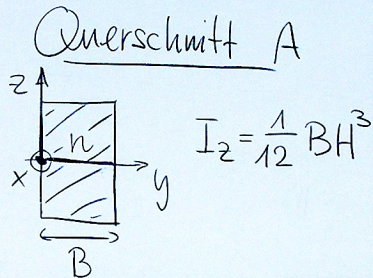 Querschnitt A
z
n
x
y
B
I_z = 1/12 BH³